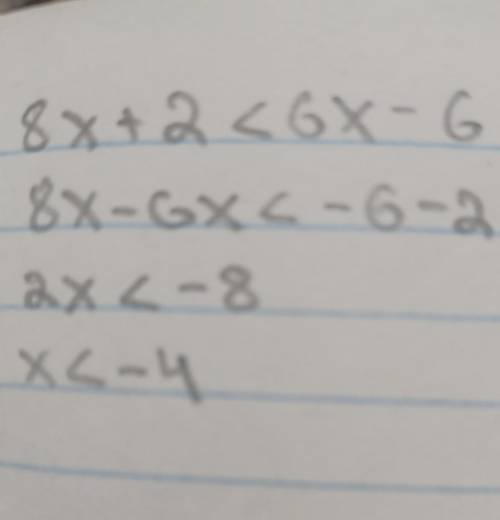 8x + 2 < 6x - 6
8x - 6x < - 6 - 2
2x < - 8
x < - 4